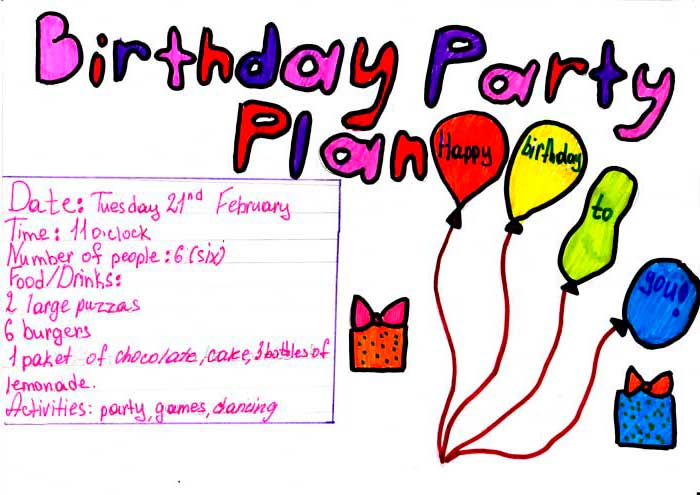 Birthday Party
Plan
Happy
birthday
to
you!
Date: Tuesday 21nd February
Time: 11 o'clock
Number of people: 6 (six)
Food/Drinks:
2 large puzzas
6 burgers
1 paket of chocolate, cake, 3 bottles of
lemonade.
Activities: party, games, dancing